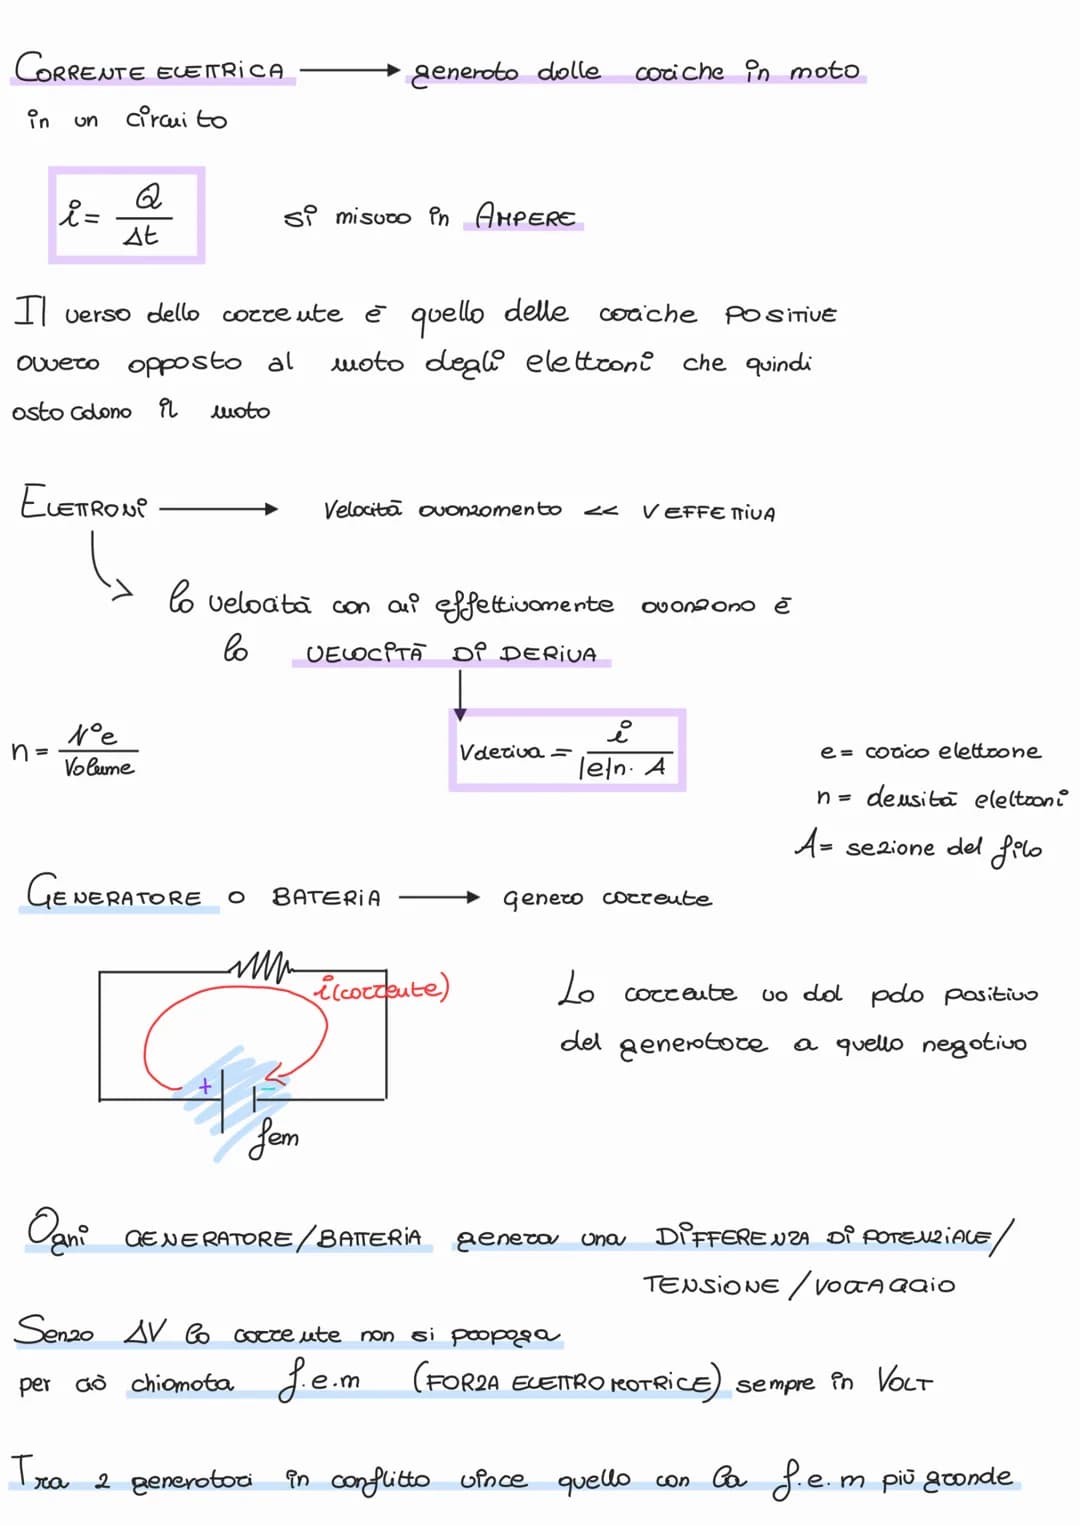 CORRENTE ELETTRICA → generata dalle cariche in moto
in un circuito
i = Q / Δt si misura in AMPERE
Il verso della corrente è quello delle cariche POSITIVE
ovvero opposto al moto degli elettroni che quindi
ostacolano il moto
ELETTRONI → Velocità avanzamento << V EFFETTIVA
la velocità con cui effettivamente avanzano è
la VELOCITÀ DI DERIVA
n = N°e / Volume
Vderiva = i / |e|n · A
e = carica elettrone
n = densità elettroni
A = sezione del filo
GENERATORE O BATERIA → genera corrente
i (corrente)
+ −
fem
La corrente va dal polo positivo
del generatore a quello negativo
Ogni GENERATORE/BATTERIA genera una DIFFERENZA DI POTENZIALE/
TENSIONE/VOLTAGGIO
Senza ΔV la corrente non si propaga
per ciò chiamata f.e.m (FORZA ELETTROMOTRICE) sempre in VOLT
Tra 2 generatori in conflitto vince quello con la f.e.m più grande